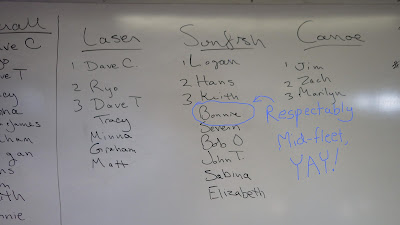 all
ave C.
yo
ve T
cey
ona
James
ham
gan
ns
th
nnie
Laser
1 Dave C.
2 Ryo
3 Dave T
Tracy
Minna
Graham
Matt
Sunfish
1 Logan
2 Hans
3 Keith
Bonnie
Severn
Bob O
John T.
Sabina
Elizabeth
Canoe
1 Jim
2 Zach
3 Marilyn
Respectably
Mid-fleet,
YAY!